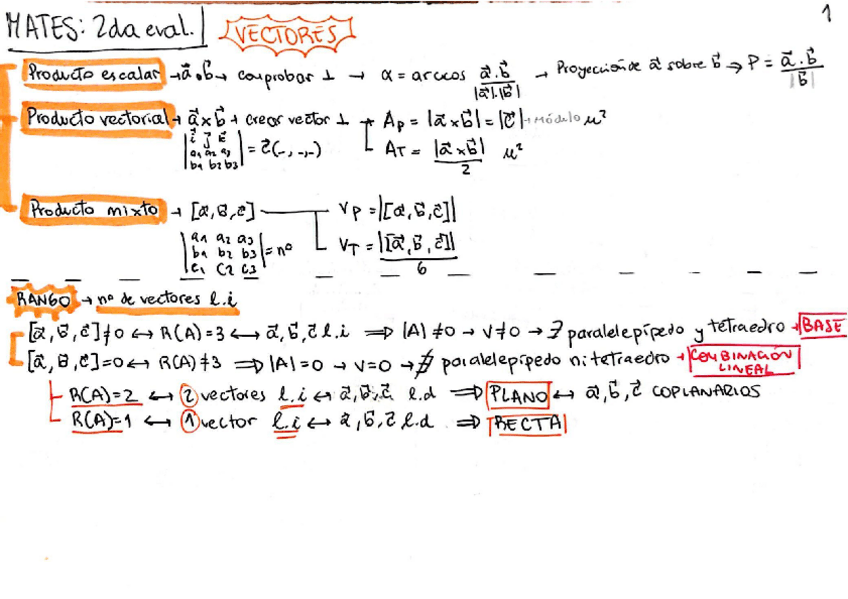 MATES: 2da eval. VECTORES 1
Producto escalar → a⃗·b⃗ → comprobar ⊥ → α = arccos a⃗·b⃗ / |a⃗|·|b⃗| → Proyección de a⃗ sobre b⃗ ⇒ P = a⃗·b⃗ / |b⃗|
Producto vectorial → a⃗×b⃗ → crear vector ⊥ → Ap = |a⃗×b⃗| = |c⃗| → módulo u²
|i⃗ j⃗ k⃗
a₁ a₂ a₃
b₁ b₂ b₃| = c⃗(_,_,_)
AT = |a⃗×b⃗| / 2 u²
Producto mixto → [a⃗,b⃗,c⃗] Vp = |[a⃗,b⃗,c⃗]|
|a₁ a₂ a₃
b₁ b₂ b₃
c₁ c₂ c₃| = nº
VT = |[a⃗,b⃗,c⃗]| / 6
RANGO → nº de vectores l.i
[a⃗,b⃗,c⃗]≠0 ↔ R(A)=3 ↔ a⃗,b⃗,c⃗ l.i ⇒ |A|≠0 → V≠0 → ∃ paralelepípedo y tetraedro → BASE
[a⃗,b⃗,c⃗]=0 ↔ R(A)≠3 ⇒ |A|=0 → V=0 → ∄ paralelepípedo ni tetraedro → COMBINACIÓN LINEAL
R(A)=2 ↔ 2 vectores l.i ↔ a⃗,b⃗,c⃗ l.d ⇒ PLANO ↔ a⃗,b⃗,c⃗ COPLANARIOS
R(A)=1 ↔ 1 vector l.i ↔ a⃗,b⃗,c⃗ l.d ⇒ RECTA